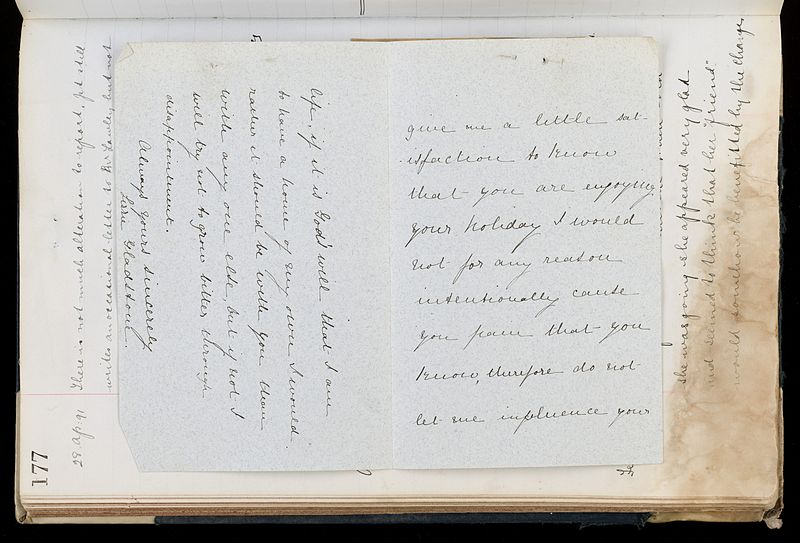 give me a little sat-
isfaction to know
that you are enjoying
your holiday I would
not for any reason
intentionally cause
you pain that you
know, therefore do not
let me influence your
life, if it is God's will that I am
to have a home of my own I would
rather it should be with you than
with any one else, but if not I
will try not to grow bitter through
disappointment.
Always yours sincerely
Gladstone.
177
29 Ap. 91
There is not much alteration to report, still
writes an occasional letter to but not
she was going she appeared very glad
and seemed to think that her "friend"
would somehow be benefitted by the change